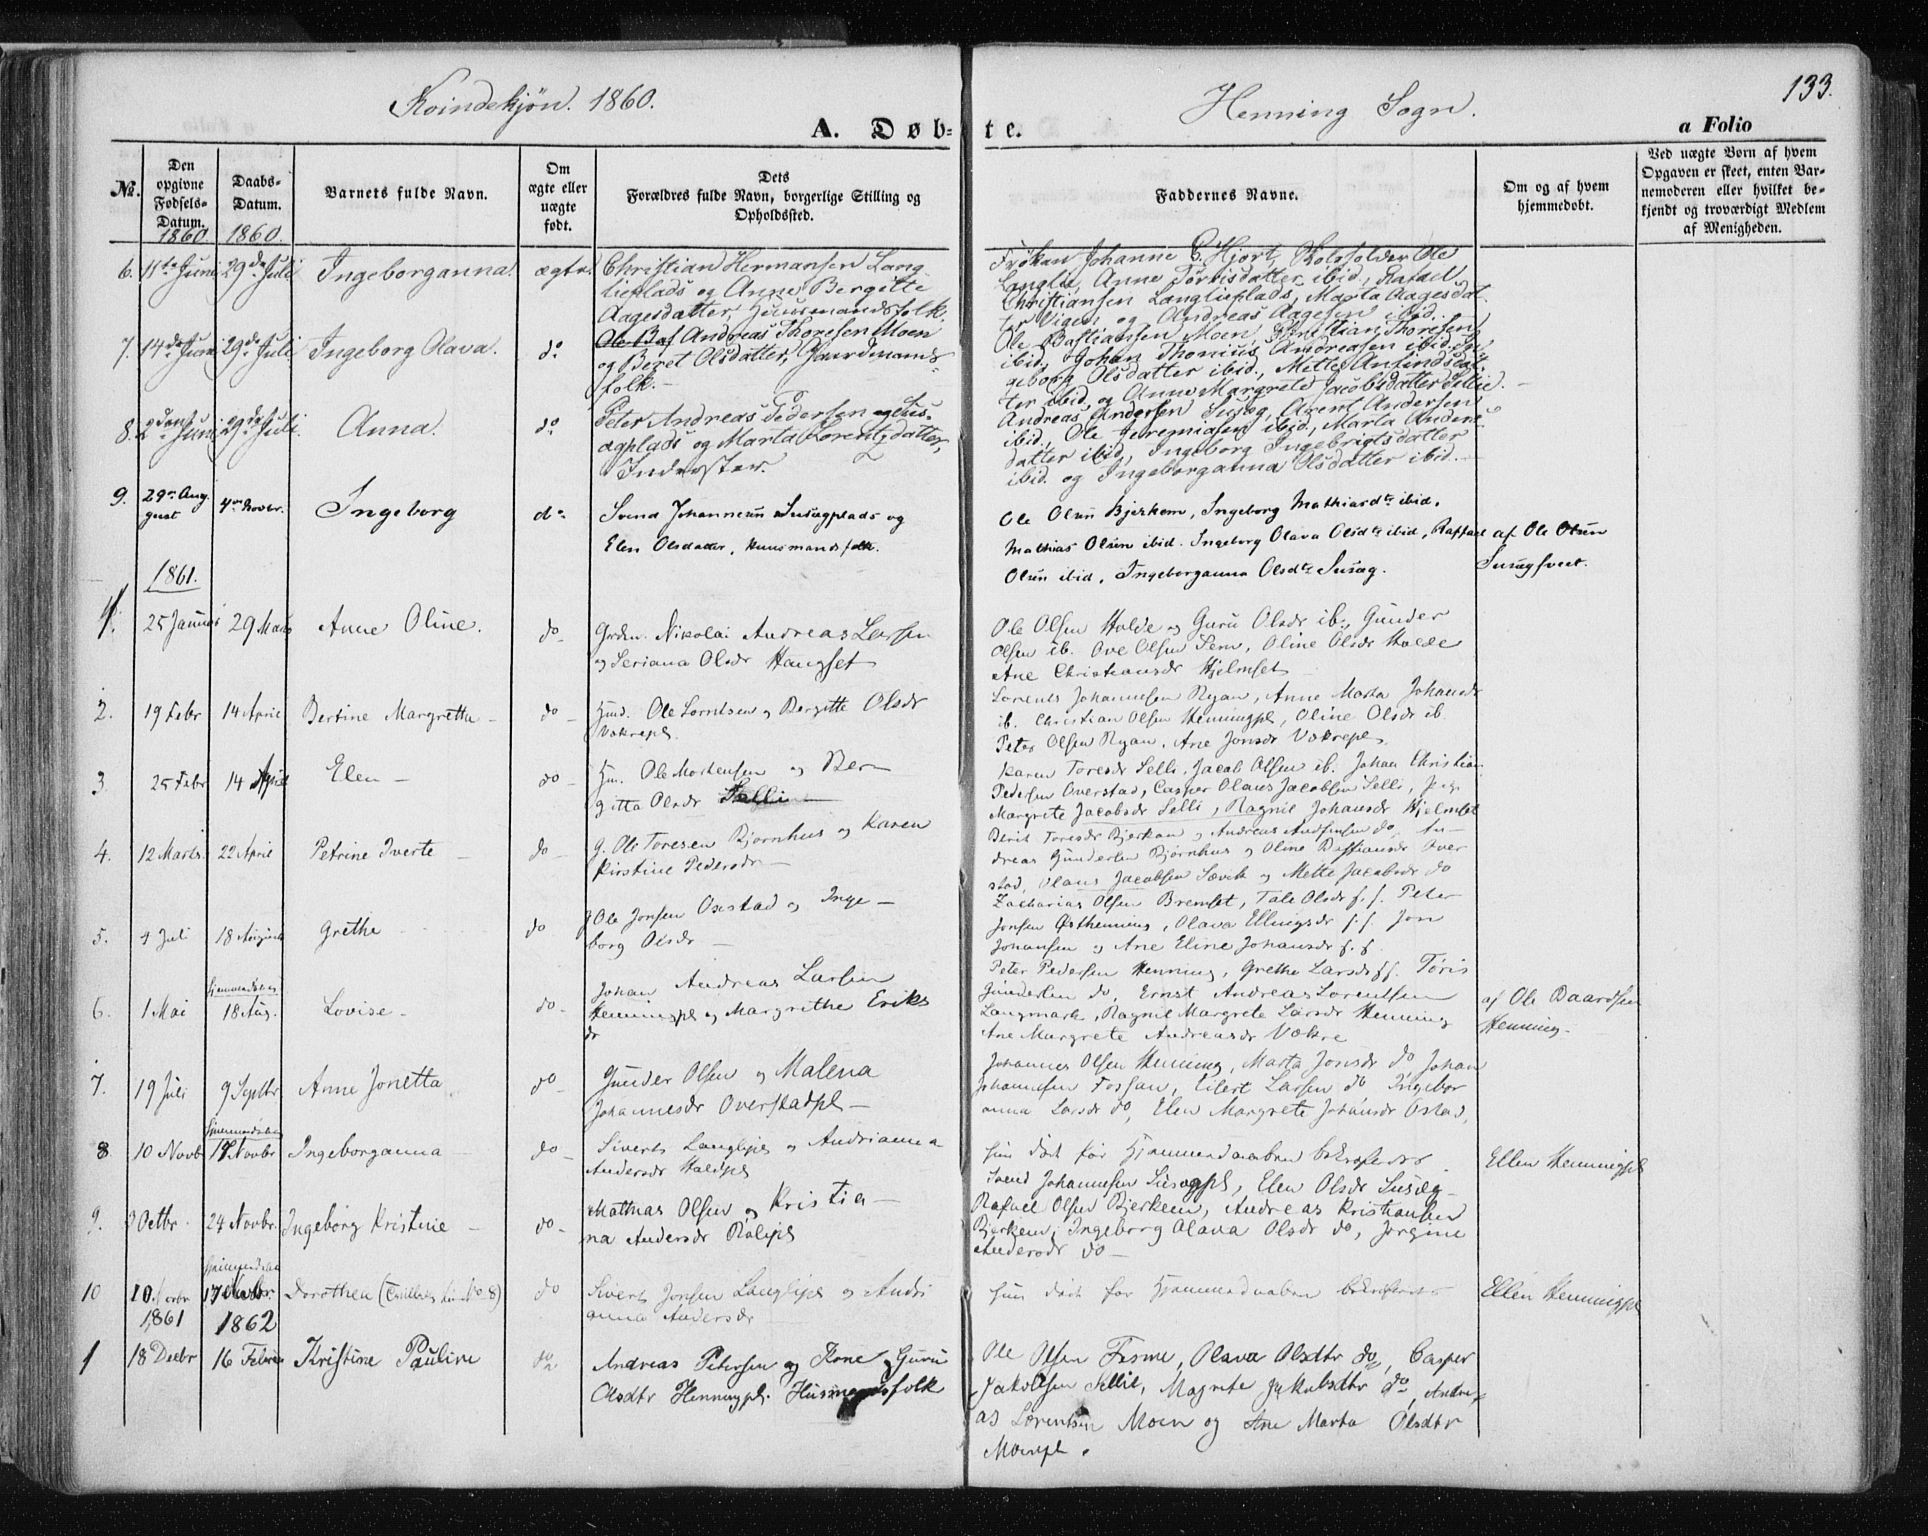 Kvindekjøn. 1860.
Henning Sogn.
133.
A. Døbte.
a Folio
No.
Den opgivne Fødsels-Datum.
Daabs-Datum.
Barnets fulde Navn.
Om ægte eller uægte født.
Dets Forældres fulde Navn, borgerlige Stilling og Opholdssted.
Faddernes Navne.
Om og af hvem hjemmedøbt.
Ved uægte Børn af hvem Opgaven er skeet, enten Barnemoderen eller hvilket bekjendt og troværdigt Medlem af Menigheden.
1860 1860.
6. 11te Juni 29de Juli Ingeborganna. ægte
Christian Hermansen Lang-
lieplads og Anne Bergitte
Aagesdatter, Huusmandsfolk.
Frøken Johanne C. Hjort, Skoleholder Ole
Langlie, Anne Tørrisdatter ibid., Rafael
Christiansen Langlieplads, Marta Aagesdat-
ter Vigen og Andreas Aagesen ibid.
7. 14de Juni 29de Juli Ingeborg Olava. do
Ole Baf Andreas Thoresen Moen
og Beret Olsdatter, Gaardmands-
folk.
Ole Bastiansen Moen, Christian Thoresen
ibid., Johan Thonius Andreasen ibid. In-
geborg Olsdatter ibid., Mette Anfindsdat-
ter ibid. og Anne Margrete Jacobsdatter Sellie.
8. 2den Juni 29de Juli. Anna. do
Peter Andreas Pedersen Sus-
ægplads og Marta Lorentzdatter,
Inderster.
Andreas Andersen Susæg, Arent Andersen
ibid., Ole Jeremiasen ibid., Marta Anders-
datter ibid., Ingeborg Ingebrigtsdatter
ibid. og Ingeborganna Olsdatter ibid.
9. 29de Aug-
gust 4de Novbr. Ingeborg do
Svend Johannesen Susægplads og
Elen Olsdatter, Huusmandsfolk.
Ole Olsen Bjerkem, Ingeborg Mathiasdtr ibid.
Mathias Olsen ibid. Ingeborg Olava Olsdtr ibid, Raffael
Olsen ibid, Ingeborganna Olsdtr Susæg.
af Ole Olsen
Susægsveet.
1861.
1. 25 Januar 29 Marts Anne Oline. do
Grdm. Nikolai Andreas Larsen
og Seriana Olsdr Haugset
Ole Olsen Halde og Guru Olsdr ib., Gunder
Olsen ib. Ove Olsen Sem, Oline Olsdr Halde
Ane Christiansdr Hjelmset
2. 19 Febr 14 April Bertine Margretha do
Hmd. Ole Lorntsen og Bergitte Olsdr
Vokrepl.
Lorents Johannesen Ryan, Anne Marta Johansdr
ib. Christian Olsen Henningpl, Oline Olsdr ib.
Peter Olsen Ryan, Ane Jonsdr Vokrepl.
3. 25 Febr 14 April Elen do
Hm. Ole Mortensen og Ber-
gitta Olsdr Selli
Karen Toresdr Selli, Jacob Olsen ib. Johan Christian
Pedersen Overstad, Casper Olaus Jacobsen Selli,
Margrete Jacobsdr Selli, Ragnil Johansdr Hjelmset
4. 12 Marts 22 April Petrine Iverte do
g. Ole Toresen Bjørnhus og Karen
Kirstine Pedersdr
Berit Toresdr Bjerkan og Andreas do, An-
dreas Gundersen Bjørnhus og Oline Bastiansdr Over
stad, Olaus Jacobsen Sævik og Mette Jacobsdr do
5. 4 Juli 18 August Grethe do
g Ole Jonsen Oxstad og Inge-
borg Olsdr
Zacharias Olsen Bremset, Tale Olsdr f. f. Peter
Jonsen Østhenning, Olava Ellingsdr f.f. Jon
Johansen og Ane Eline Johansdr f. f.
6. 1 Mai 18 Aug. Lovise do
Johan Andreas Larsen
Henningpl og Margrethe Eriks
dr
Peter Pedersen Henning, Grethe Larsdr f f. Tøris
Gundersen do, Ernst Andreas Lorentsen
Langmark, Ragnil Margrete Larsdr Henning
Ane Margrete Andreasdr Vokre
af Ole Baardsen
Henning.
7. 19 Juli 9 Septbr Anne Jonetta do
Gunder Olsen og Malena
Johannesdr Overstadpl
Johannes Olsen Henning, Marta Jonsdr do, Johan
Johannesen Fossan, Eilert Larsen do Ingebor
anna Larsdr do, Elen Margrete Johansdr Østad,
8. 10 Novb 17 Novbr Ingeborganna do
Siverts Langlipl og Andrianna
Andersdr Haldpl
hun død før Hjemmedaaben bekræftedes
Ellen Henningpl
9. 3 Octbr 24 Novbr. Ingeborg Kristine do
Mathias Olsen og Kristia-
na Andersdr Ralipl
Svend Johannesen Susægpl, Elen Olsdr Susæg
Rafael Olsen Bjerkem, Andreas Kristiansen
Bjerkem, Ingeborg Olava Olsdr do, Jørgine
Andersdr do
10 10 Novbr 17 Novbr. Dorothea (Tvilling til No 8) do
Sivert Jonsen Langlipl og Andri
anna Andersdr
hun død før Hjemmedaaben bekræftedes
Ellen Henningpl
1861 1862
1 18 Decbr 16 Februar Kristine Pauline do
Andreas Petersen og Kone Guru
Olsdtr Henningpl. Husmandsfolk
Ole Olsen Fisme, Olava Olsdtr do, Casper
Jakobsen Sellie, Magrete Jakobsdtr do, Andre-
as Lorentsen Moen og Ane Marta Olsdtr
Moenpl.